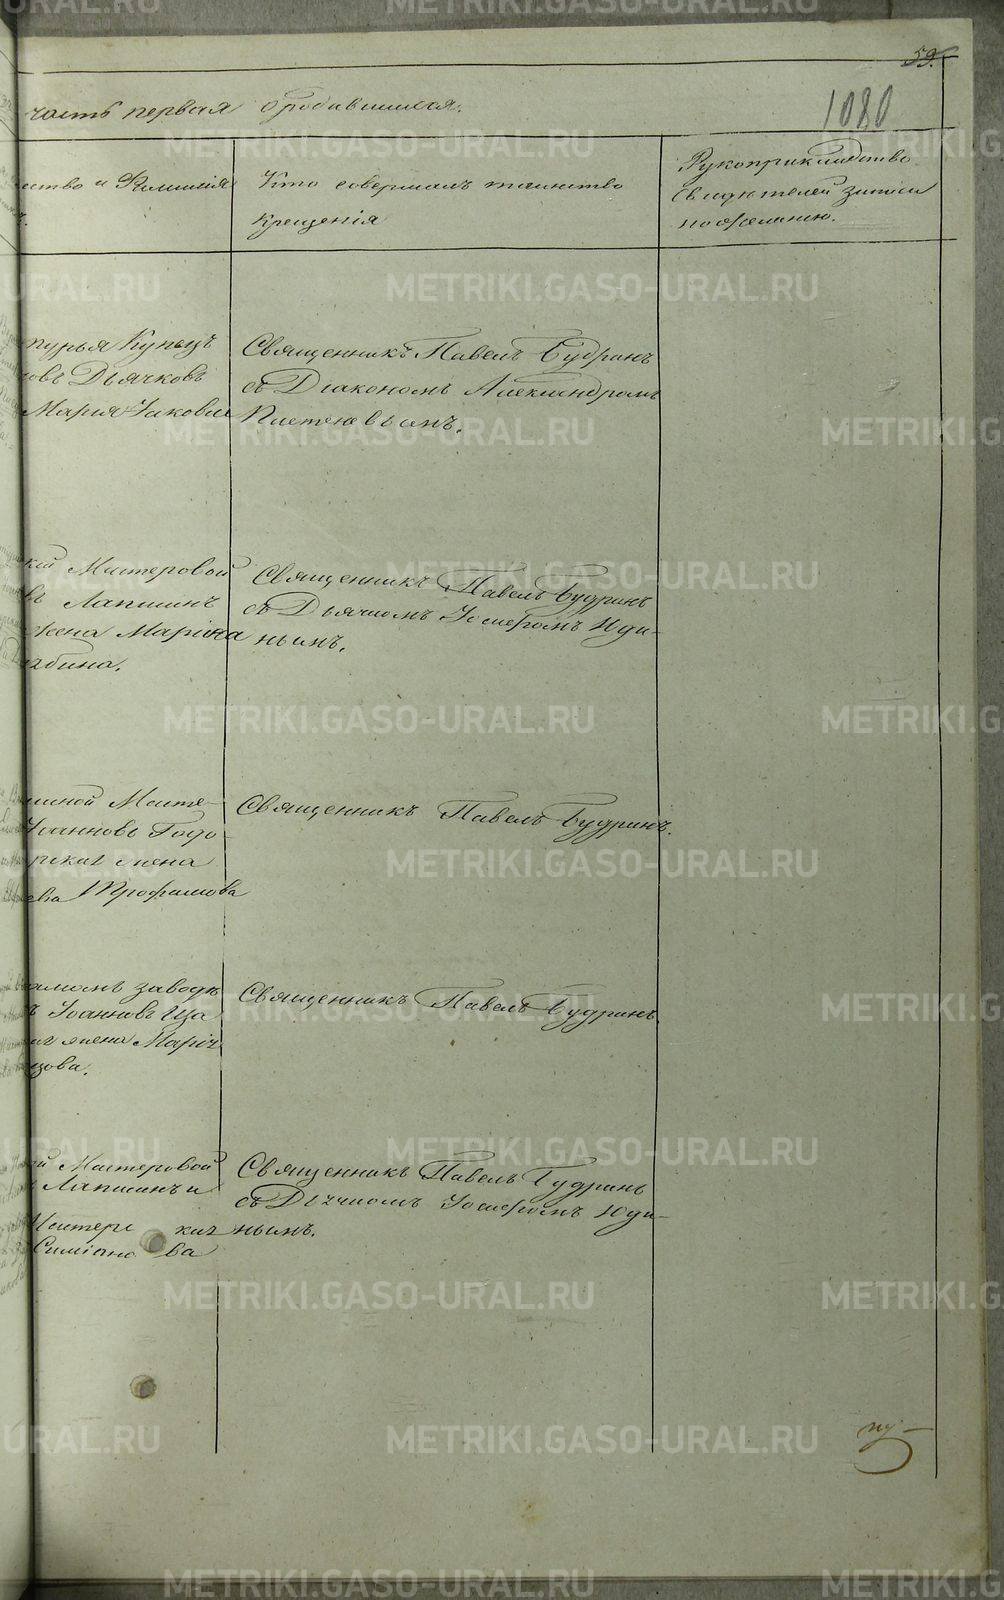 59.
1080
часть первая о родившихся.
ство и Фамилія
Кто совершалъ таинство
крещенія
Рукоприкладство
свидѣтелей записи
по желанію.
Купецъ
овъ Дьячковъ
Марія Іаковле
Священникъ Павелъ Будринъ
съ Діакономъ Александромъ
кій Мастеровой
въ Лапшинъ
жена Марина
бина.
Священникъ Павелъ Будринъ
съ Дьячкомъ Іосифомъ Юди-
нымъ.
Масте-
Іоанновъ
жена
ева Трофимова
Священникъ Павелъ Будринъ.
заводѣ
ъ Іоанновъ Ща
жена Марія
цова.
Священникъ Павелъ Будринъ.
ій Мастеровой
Лапшинъ и
ва
Священникъ Павелъ Будринъ
съ Дьячкомъ Іосифомъ Юди-
нымъ.
METRIKI.GASO-URAL.RU